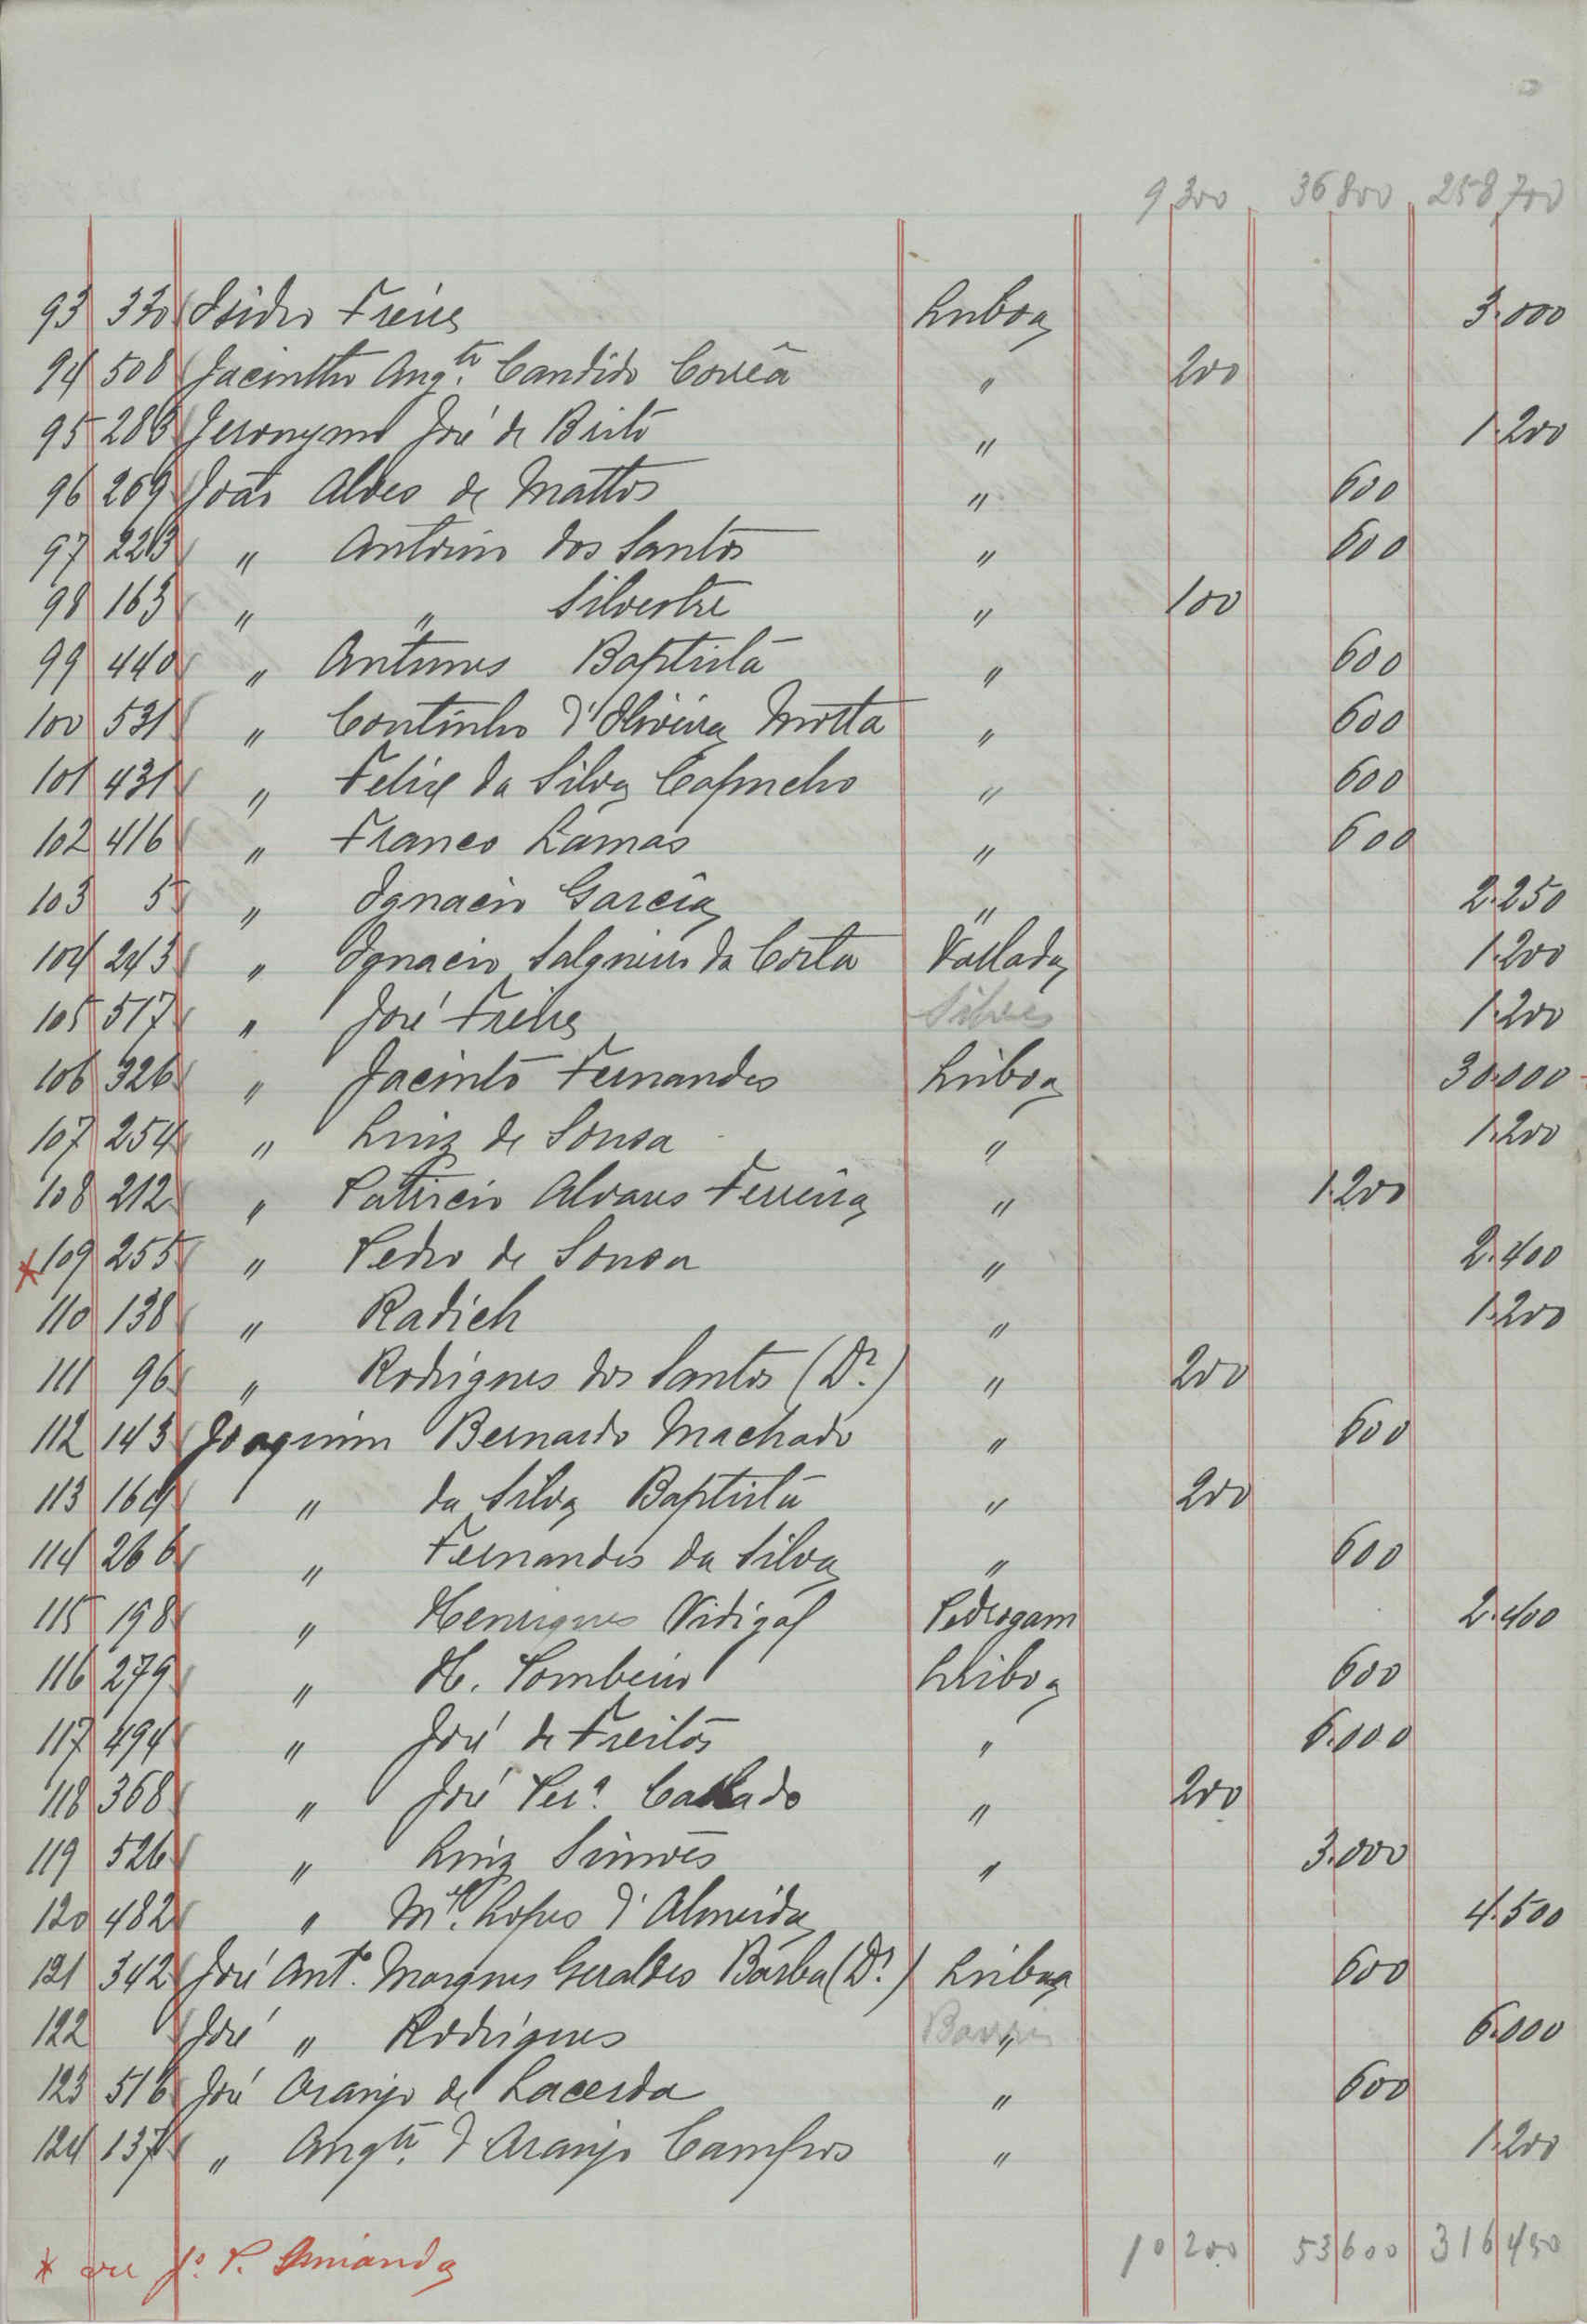 9 300 36 800 258 700
93 330 Isidro Freire Lisboa 3.000
94 508 Jacintho Aug.to Candido Corrêa " 200
95 283 Jeronymo José de Brito " 1.200
96 269 João Alves de Mattos " 600
97 223 " Antonio dos Santos " 600
98 163 " " Silvestre " 100
99 440 " Antunes Baptista " 600
100 531 " Coutinho d'Oliveira Motta " 600
101 431 " Felix da Silva Capucho " 600
102 416 " Franco Lamas " 600
103 5 " Ignacio Garcia " 2.250
104 243 " Ignacio Salgueiro da Costa Vallada 1.200
105 517 " José Freire Silves 1.200
106 326 " Jacinto Fernandes Lisboa 30.000
107 254 " Luiz de Sousa " 1.200
108 212 " Patricio Alvares Ferreira " 1.200
* 109 255 " Pedro de Sousa " 2.400
110 138 " Radich " 1.200
111 96 " Rodrigues dos Santos (Dr.) " 200
112 143 Joaquim Bernardo Machado " 600
113 164 " da Silva Baptista " 200
114 266 " Fernandes da Silva " 600
115 198 " Henriques Vidigal Pedrogam 2.400
116 279 " H. Pombeiro Lisboa 600
117 494 " José de Freitas " 6.000
118 368 " José Per.a Callado " 200
119 526 " Luiz Simões " 3.000
120 482 " M.el Lopes d'Almeida 4.500
121 342 José Ant.o Marques Geraldes Barba (Dr.) Lisboa 600
122 José " Rodrigues " 6.000
123 516 José Araujo de Lacerda " 600
124 137 " Aug.to d'Araujo Campos " 1.200
10 200 53 600 316 450
* ou J.o P.